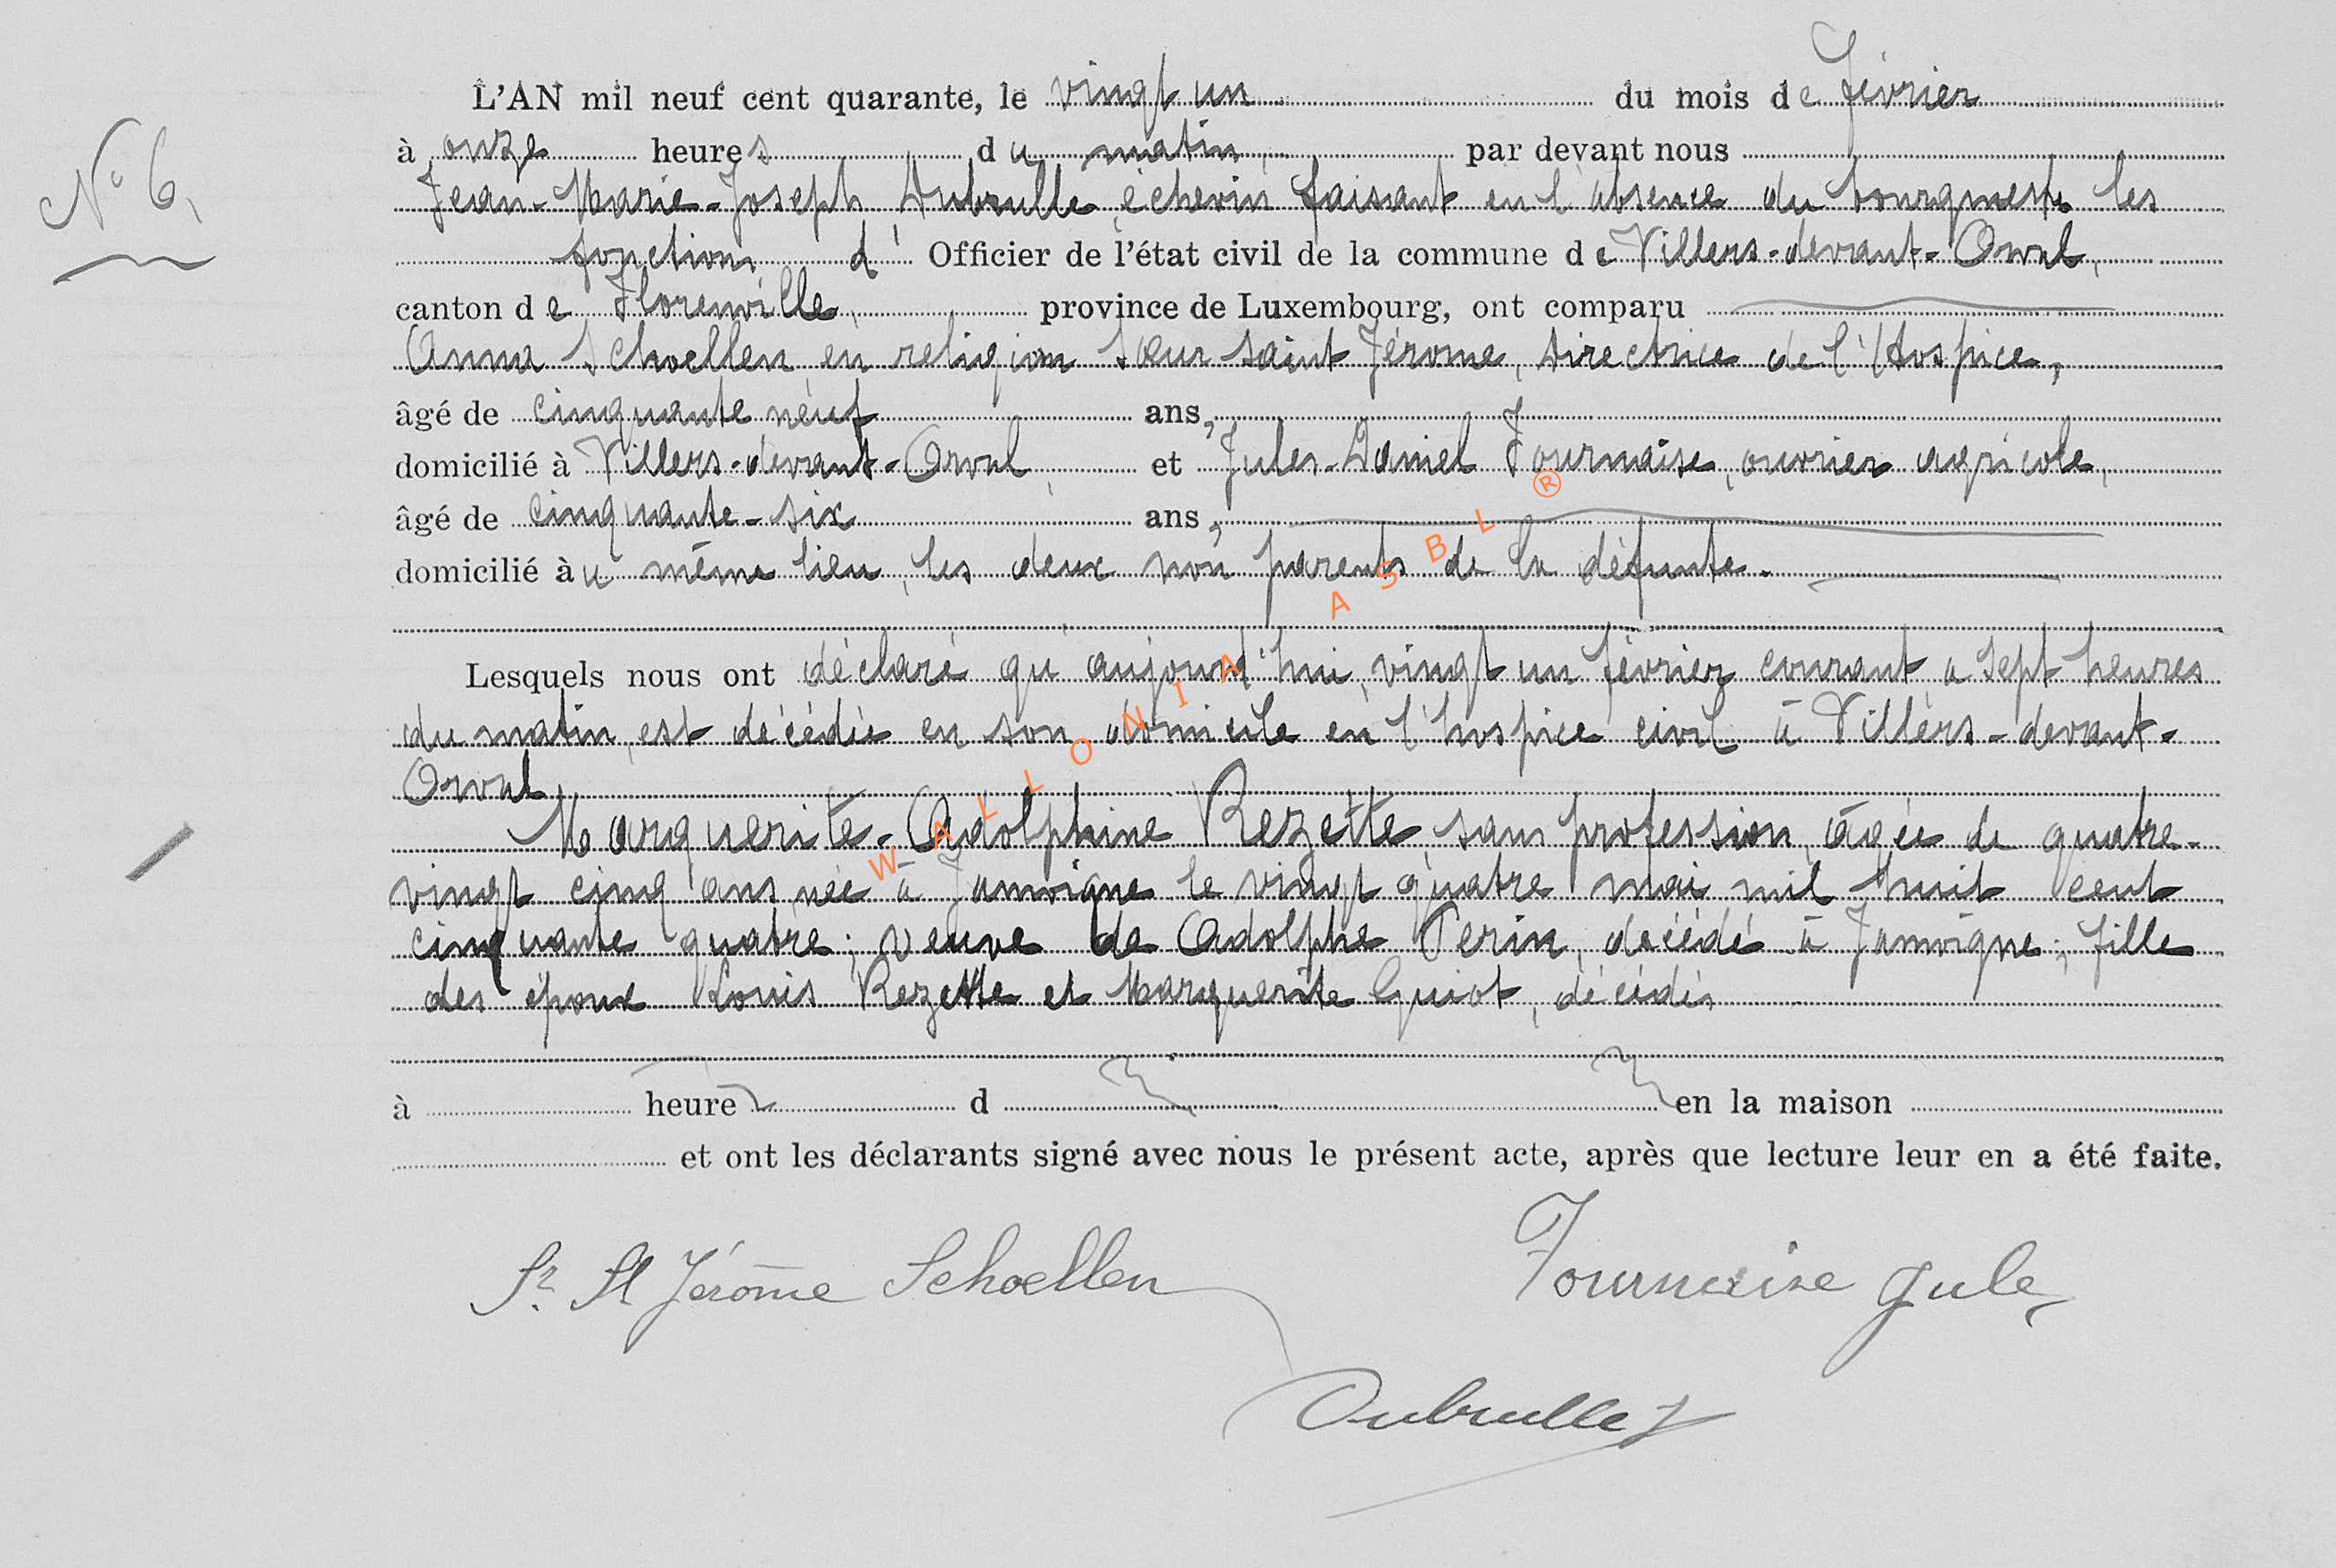 L'AN mil neuf cent quarante, le vingt un du mois de février
N° 6.
à onze heures du matin, par devant nous
Jean-Marie-Joseph Dubrulle, échevin faisant en l'absence du bourgmestre les
fonctions d' Officier de l'état civil de la commune de Villers-devant-Orval,
canton de Florenville, province de Luxembourg, ont comparu
Anna Schoellen en religion sœur saint Jérome, directrice de l'Hospice,
âgé de cinquante neuf ans,
domicilié à Villers-devant-Orval, et Jules-Daniel Fournaise, ouvrier agricole,
âgé de cinquante-six ans,
domicilié àu même lieu, les deux non parents de la défunte.
Lesquels nous ont déclaré qu'aujourd'hui, vingt un février courant à sept heures
du matin, est décédée en son domicile en l'hospice civil à Villers-devant-
Orval
Marguerite-Adolphine Rezette, sans profession, âgée de quatre-
vingt cinq ans, née à Jamoigne le vingt quatre mai mil huit cent
cinquante quatre; veuve de Adolphe Perin, décédé à Jamoigne; fille
des époux Louis Rezette et Marguerite Guiot, décédés
à heure d en la maison
et ont les déclarants signé avec nous le présent acte, après que lecture leur en a été faite.
Sr. St Jérôme Schoellen
Fournaise Jules
Dubrulle J
WALLONIA ASBL ®